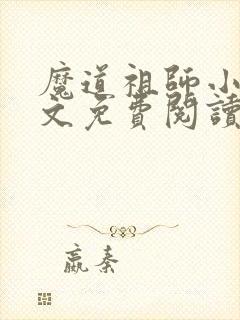 魔道祖師小
文免費閱讀
嬴秦